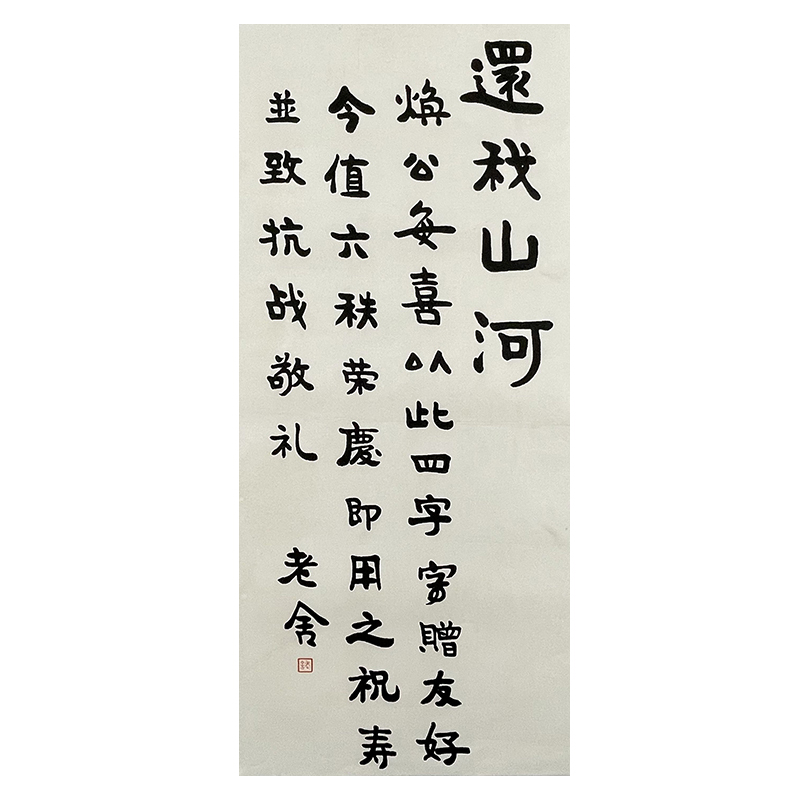 還我山河
焕公每喜以此四字寫贈友好
今值六秩荣慶即用之祝寿
並致抗战敬礼
老舍